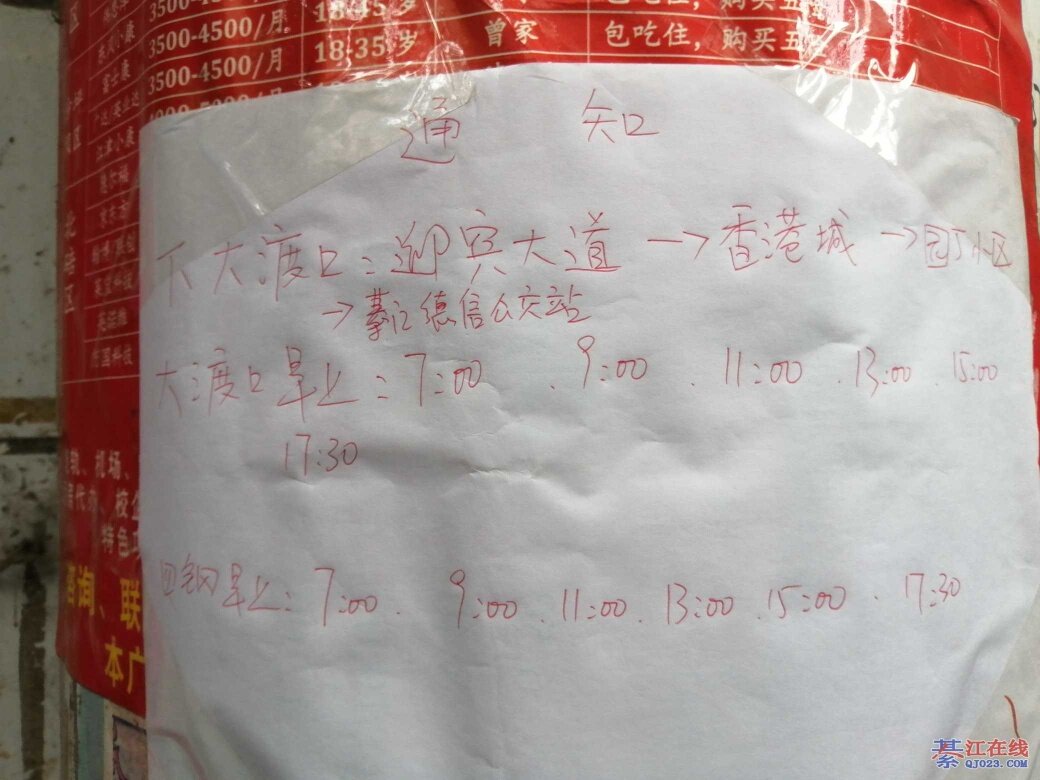 3500-4500/月 18-45岁
3500-4500/月 18-35岁 曾家 包吃住，购买五
3500-4500/月
通 知
下大渡口：迎宾大道→香港城→园丁小区
→綦江德信公交站
大渡口早上：7:00 、9:00 、11:00 、13:00 、15:00
17:30
回钢早上：7:00、 9:00、11:00、13:00、15:00、17:30
机场、
校企
特色
咨询、联
本广
綦江在线
QJ023.COM